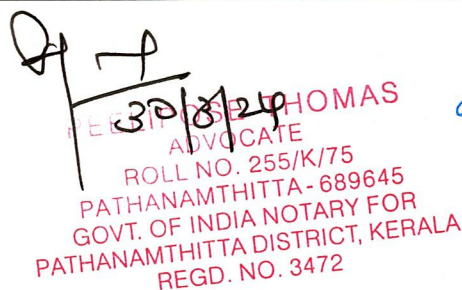 30/8/24
PEELIPOSE THOMAS
ADVOCATE
ROLL NO. 255/K/75
PATHANAMTHITTA - 689645
GOVT. OF INDIA NOTARY FOR
PATHANAMTHITTA DISTRICT, KERALA
REGD. NO. 3472